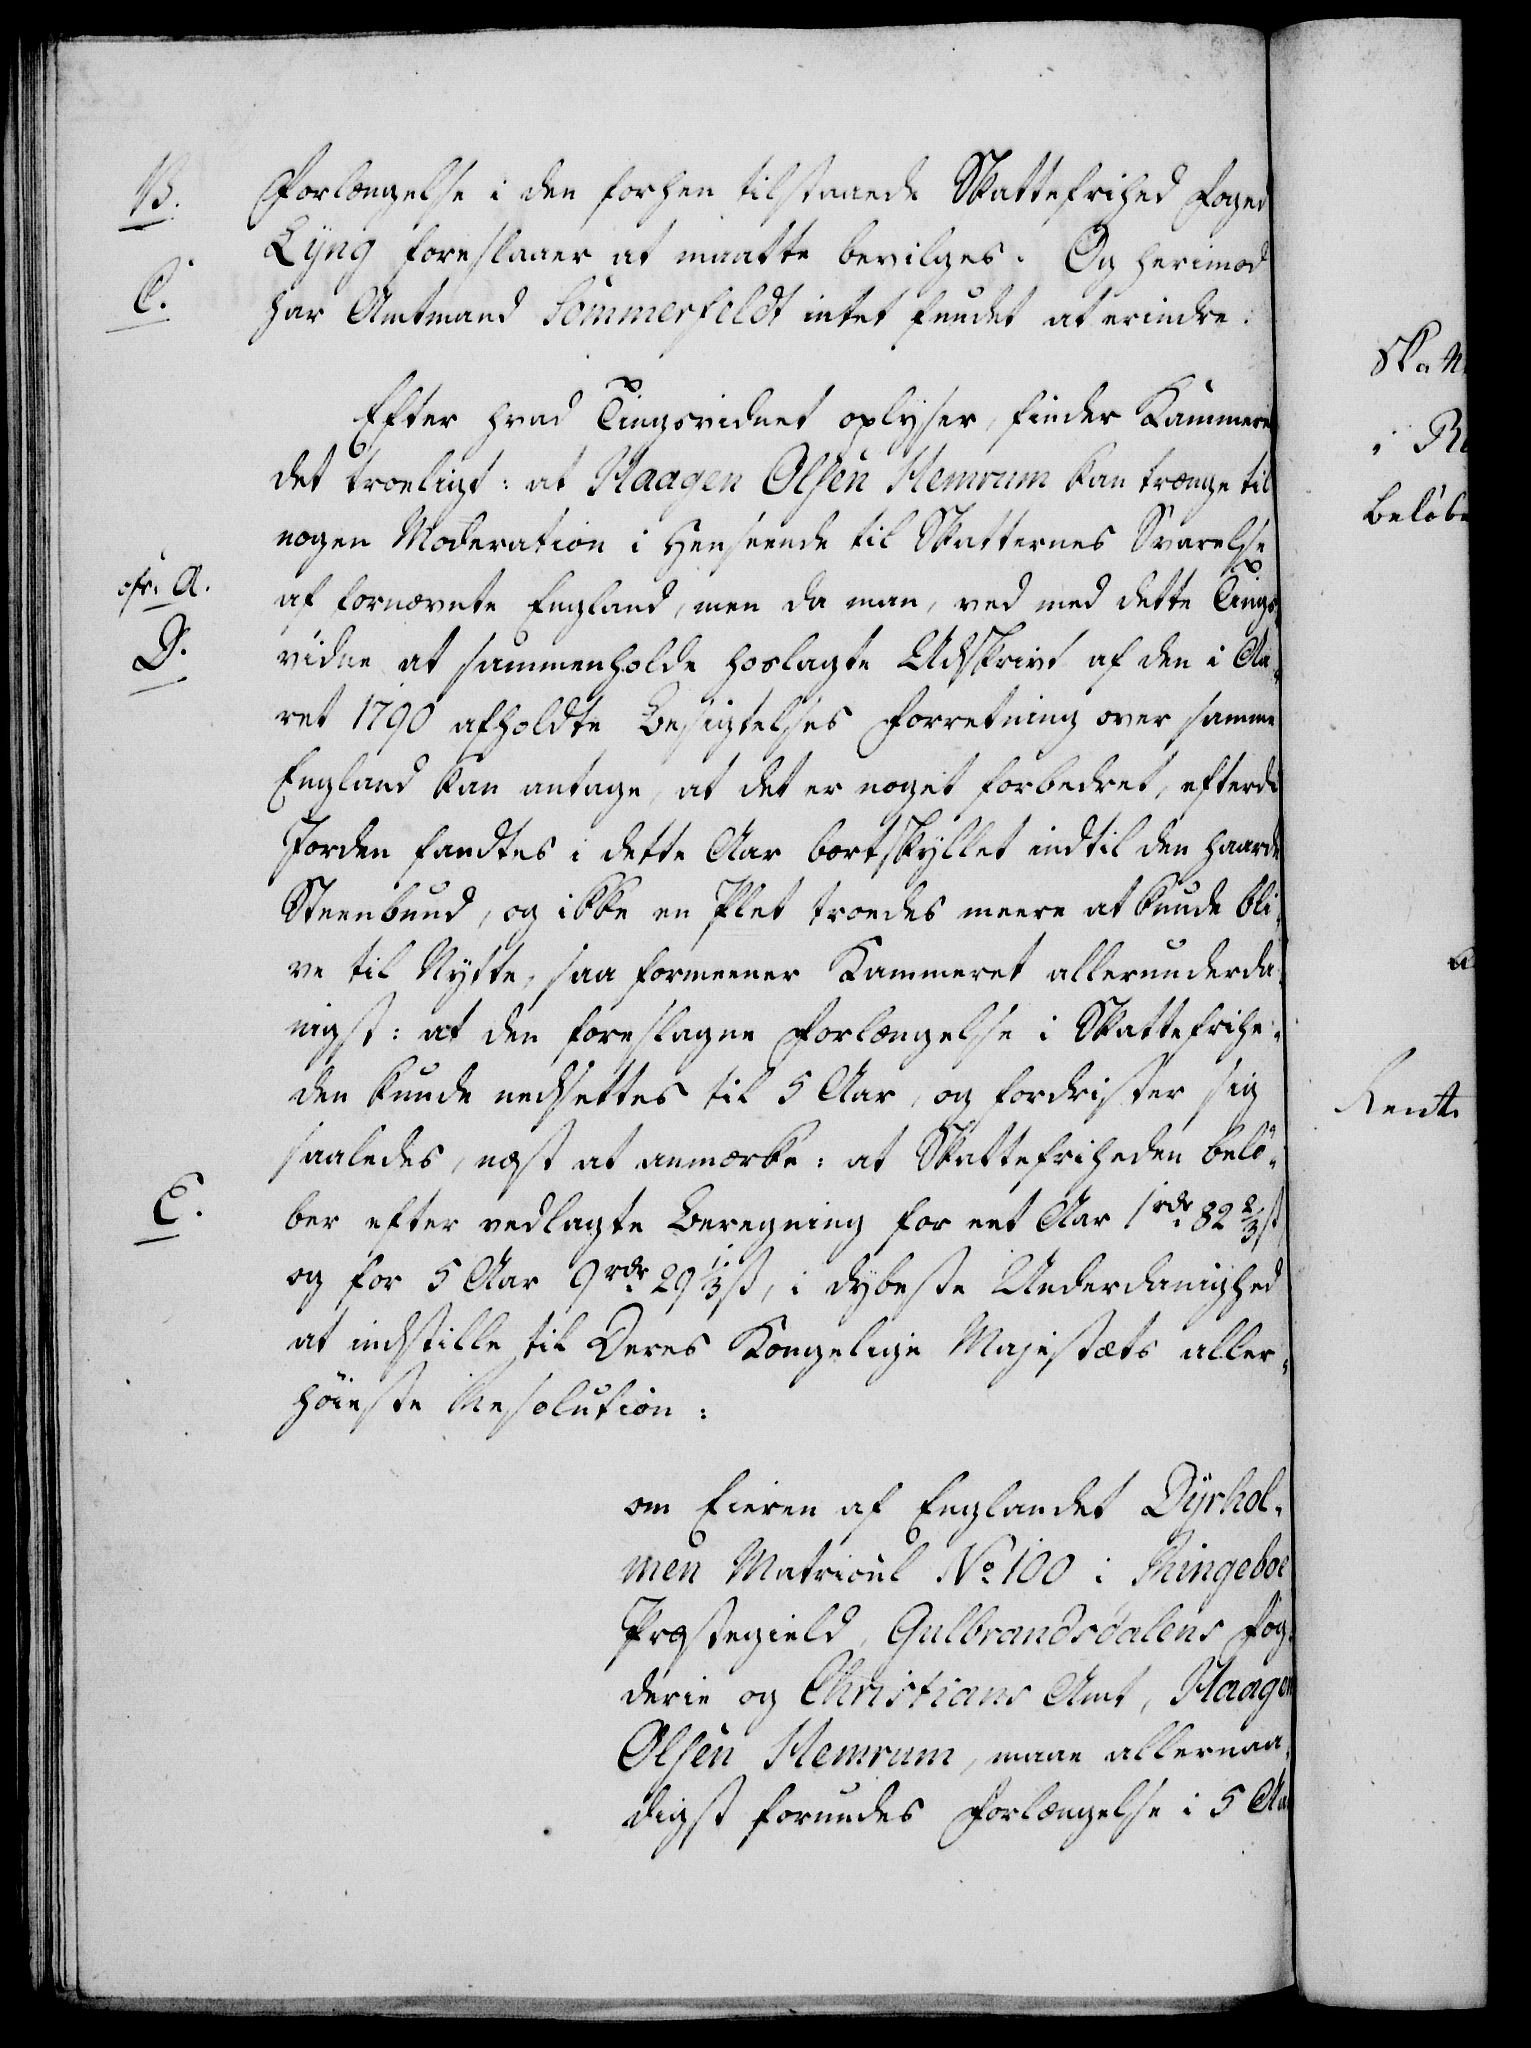 B.
Forlængelse i den forhen tilstaaede Skattefrihed Foged
Lyng foreslaaer at maatte bevilges. Og herimod
C.
har Amtmand Sommerfeldt intet fundet at erindre.
Efter hvad Tingsvidnet oplyser, finder Kammeret
det troeligt: at Haagen Olsen Hemrum kan trænge til
nogen Moderation i Henseende til Skatternes Svarelse
cfr. A.
af fornævnte England, men da man, ved med dette Tings-
D.
vidne at sammenholde hoslagte Udskrivt af den i Aa-
ret 1790 afholdte Besigtelses Forretning over samme
England kan antage, at det er noget forbedret, efterdi
Jorden fandtes i dette Aar bortskyllet indtil den haarde
Steenbund, og ikke en Plet troedes meere at kunde bli-
ve til Nytte, saa formeener Kammeret allerunderda-
nigst: at den foreslagne Forlængelse i Skattefrihe-
den kunde nedsettes til 5 Aar, og fordrister sig
saaledes, næst at anmærke: at Skattefriheden belø-
E.
ber efter vedlagte Beregning for eet Aar 1 rdr 82 2/3 ß
og for 5 Aar 9 rdr 29 1/3 ß, i dybeste Underdanighed
at indstille til Deres Kongelige Majestæts aller-
høieste Resolution:
om Eieren af Englandet Dyrhol-
men Matricul No 100 i Ringeboe
Præstegield, Gulbrandsdalens Fog-
derie og Christians Amt, Haagen
Olsen Hemrum, maae allernaa-
digst forundes Forlængelse i 5 Aar